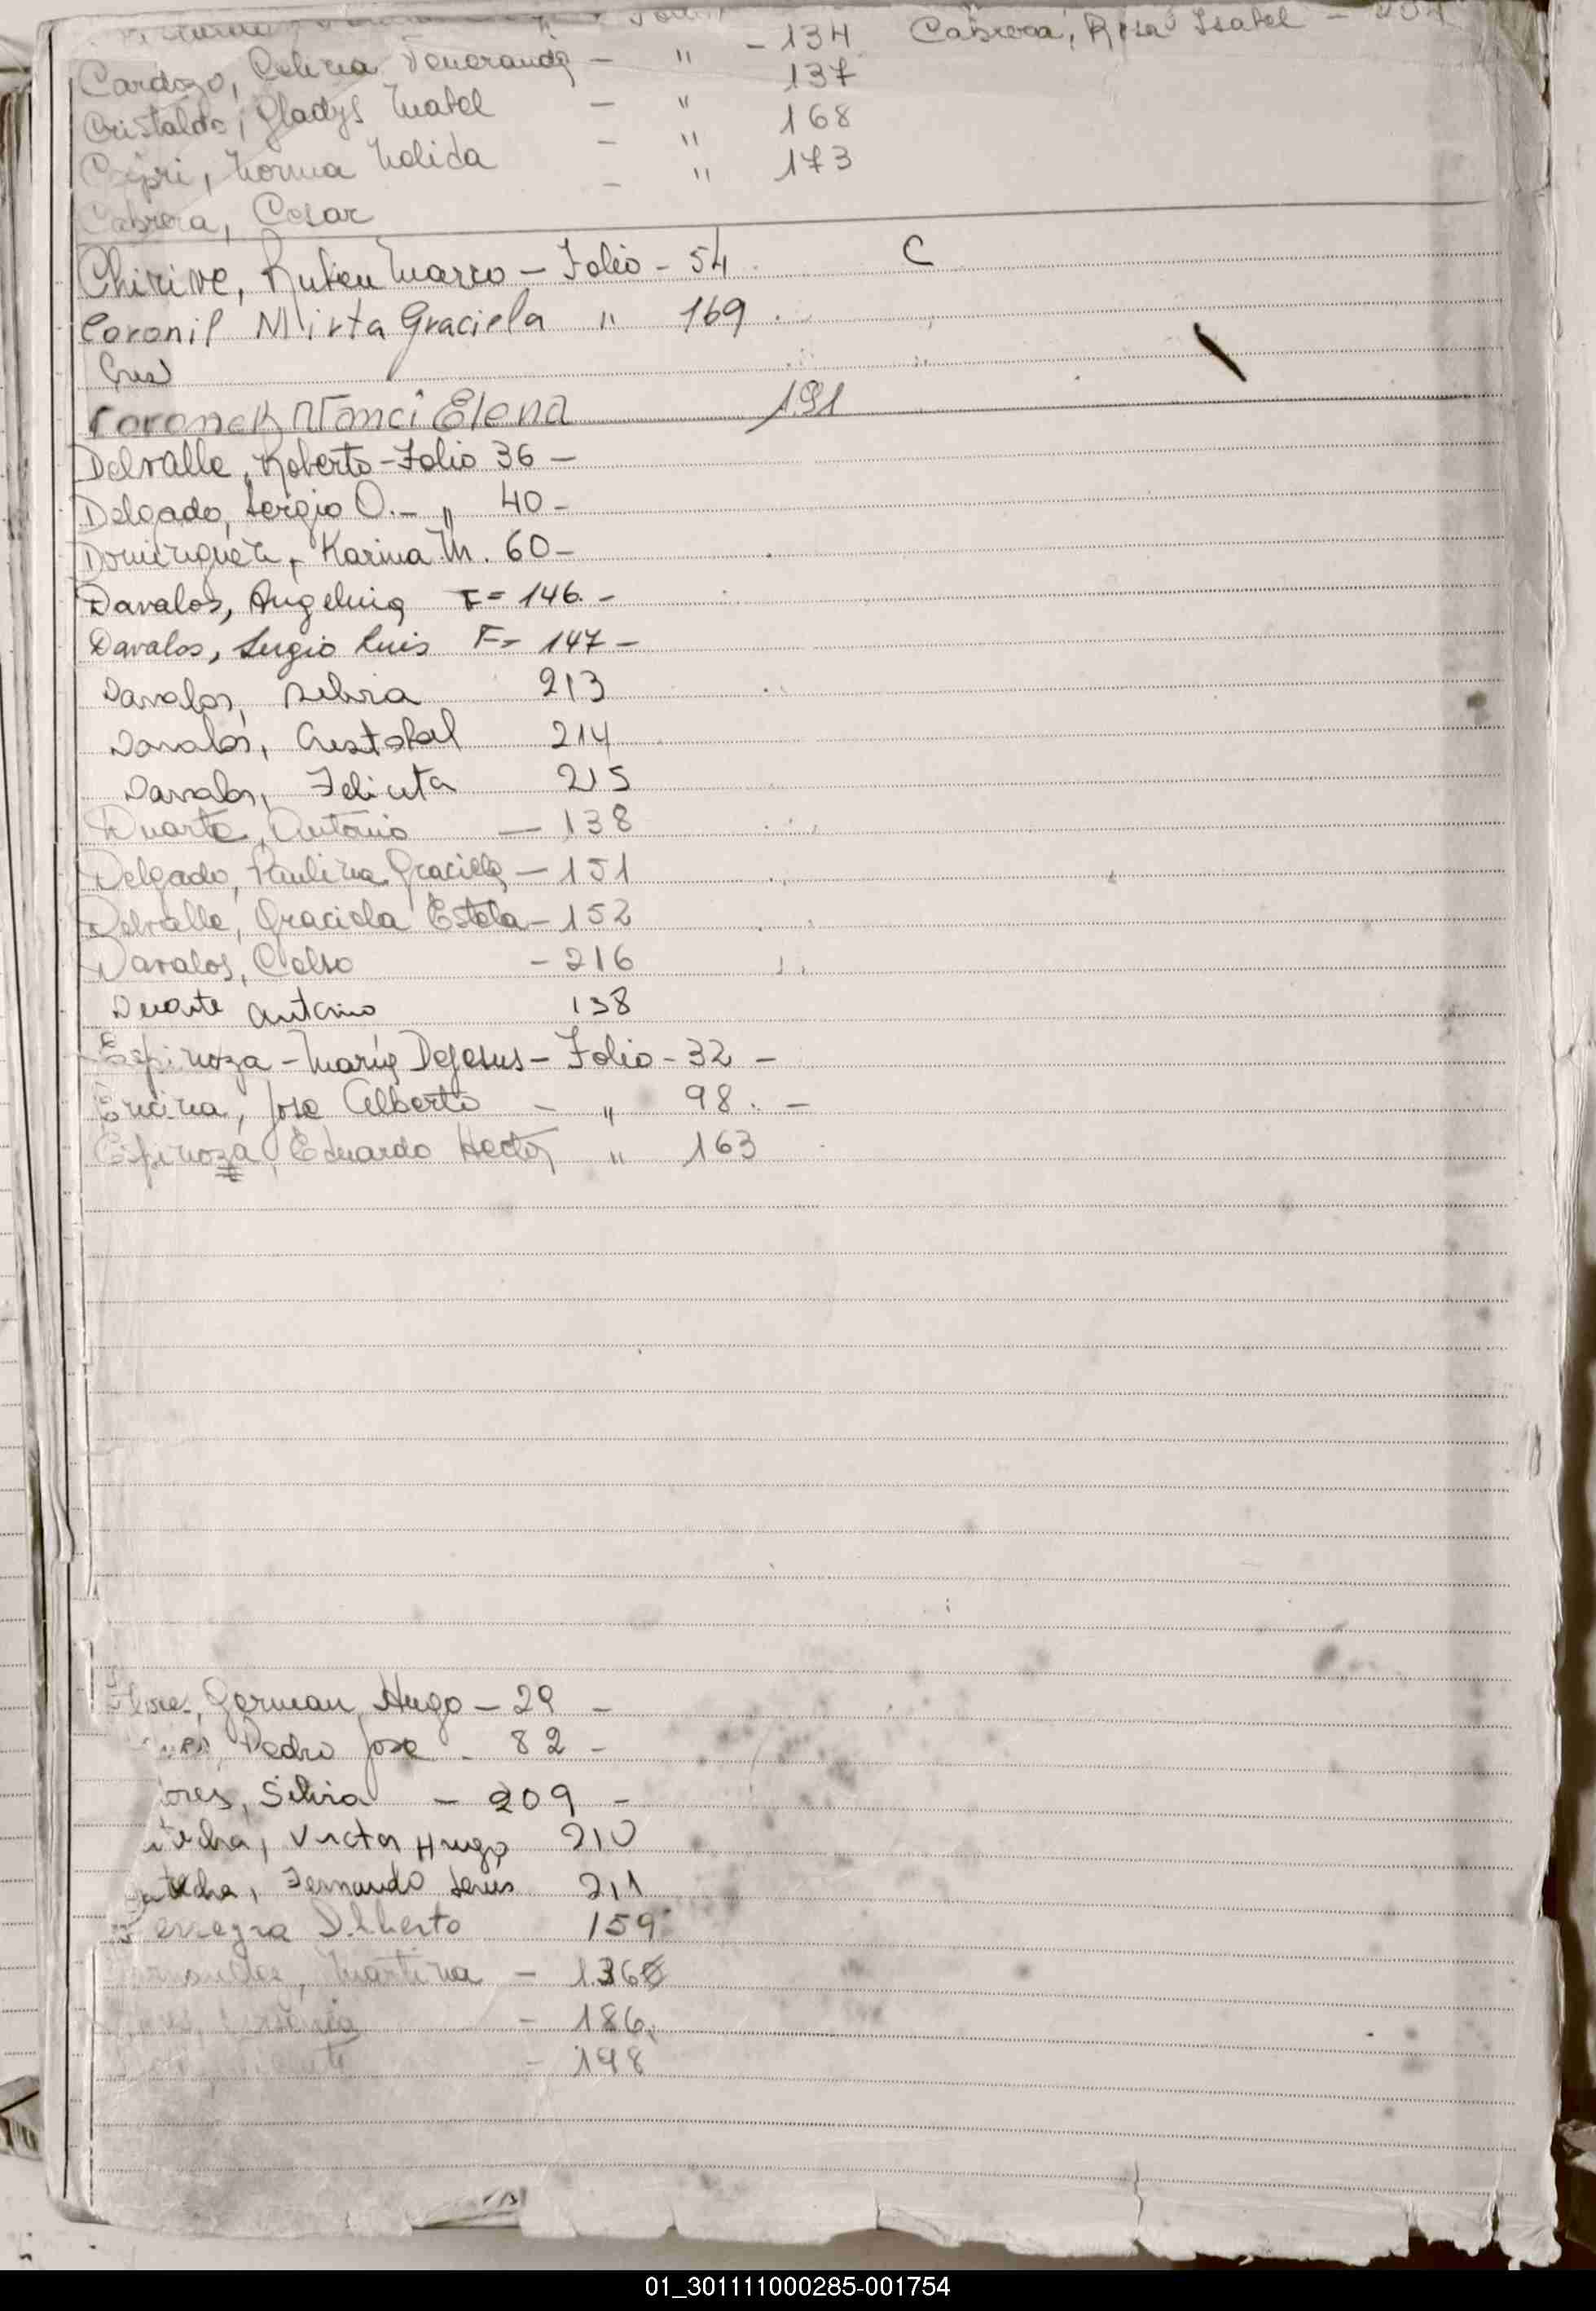 Cabrera, Rosa Isabel -
Cardozo, Celina Veneranda - " - 134
Cristaldo, Gladys Mabel - " 137
Cipri, Norma Nelida - " 168
Cabrera, Cesar - " 173
Chirive, Ruben Marco - Folio - 54
C
Coronil Mirta Graciela " 169
Coronel Nanci Elena 191
Delvalle, Roberto - Folio 36 -
Delgado, Sergio O. - " 40 -
Dominguez, Karina M. 60 -
Davalos, Angelina F = 146. -
Davalos, Sergio Luis F = 147 -
Davalos, Silvia 213
Davalos, Cristobal 214
Davalos, Felicita 215
Duarte, Antonio - 138
Delgado, Paulina Graciela - 151
Delvalle, Graciela Estela - 152
Davalos, Celso - 216
Duarte Antonio 138
Espinoza - Maria DeJesus - Folio - 32 -
Encina, Jose Alberto - " 98. -
Espinoza, Eduardo Hector " 163
German Hugo - 29 -
Pedro Jose - 82 -
ores, Silvia - 209 -
Victor Hugo 210
Fernando 211
Alberto 159
Martina - 136
- 186
- 198
01_301111000285-001754